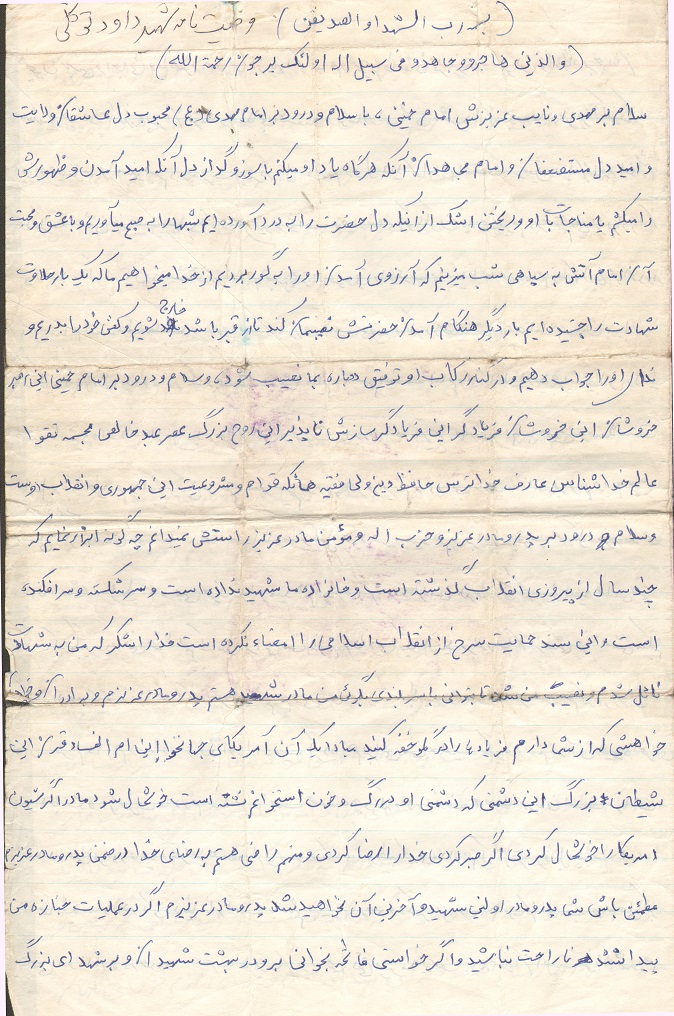 (بسم رب الشهدا و الصدیقین) وصیت نامه شهید داود توکلی
(والذین هاجرو و جاهدو فی سبیل اله اولئک یرجون رحمة الله)
سلام بر مهدی و نایب عزیزش امام خمینی، با سلام و درود بر امام مهدی (عج) محبوب دل عاشقان ولایت
و امید دل مستضعفان و امام مجاهدان آنکه هرگاه یاد او میکنم با سوز و گداز دل آنکه امید آمدن و ظهورش
را میکشم یا مناجات با او و ریختن اشک از اینکه دل حضرت را به درد آورده ایم شبها را به صبح میآوریم و با عشق و محبت
آن امام آتش به سیاهی شب میزنیم که آرزوی آمدن او را به گور بردیم از خدا میخواهیم ما که یک بار حلاوت
شهادت را چشیده ایم بار دیگر هنگام آمدن حضرتش نصیبمان کند تا از قبر خارج شویم و کفن خود را بدریم و
ندای او را جواب دهیم و در کنار رکاب او توفیق دوباره بما نصیب شود، و سلام و درود بر امام خمینی این
خروشان این خروشان فریادگر این فریادگر سازش ناپذیر این روح بزرگ عصر عبد خالص مجسمه تقوا
عالم خداشناس عارف خداترس حافظ دین ولی فقیه همانکه قوام و مشروعیت این جمهوری و انقلاب اوست
و سلام و درود بر پدر و مادر عزیز و حزب اله و مؤمن مادر عزیز راستش نمیدانم چه گونه ابراز نمایم که
چند سال از پیروزی انقلاب گذشته است و خانواده ما شهید نداده است و سر شکسته و سرافکنده
است و این سند حمایت سرخ از انقلاب اسلامی را امضاء نکرده است خدا را شکر که من به شهادت
نائل شدم و نصیب من شد تا بتوانی با سربلندی بگوئی من مادر شهید هستم پدر و مادر عزیزم و برادران و
خواهشی که از شما دارم فریادها را در گلو خفه کنید مبادا یک آن آمریکای جهانخوار این ام الفساد قرن این
شیطان بزرگ این دشمنی که دشمنی او در رگ و خون استخوانم است خوشحال شود مادر اگر شیون
امریکا را خوشحال کردی اگر صبر کردی خدا را رضا کردی و منهم راضی هستم به رضای خدا در ضمن پدر و مادر عزیزم
مطمئن باش شما پدر و مادر اولین شهید و آخرین آن نخواهید شد پدر و مادر عزیزم اگر در عملیات جنازه من
پیدا نشد ناراحت نباشید و اگر خواستی فاتحه بخوانی برو در بهشت شهیدان و بر شهدای بزرگ